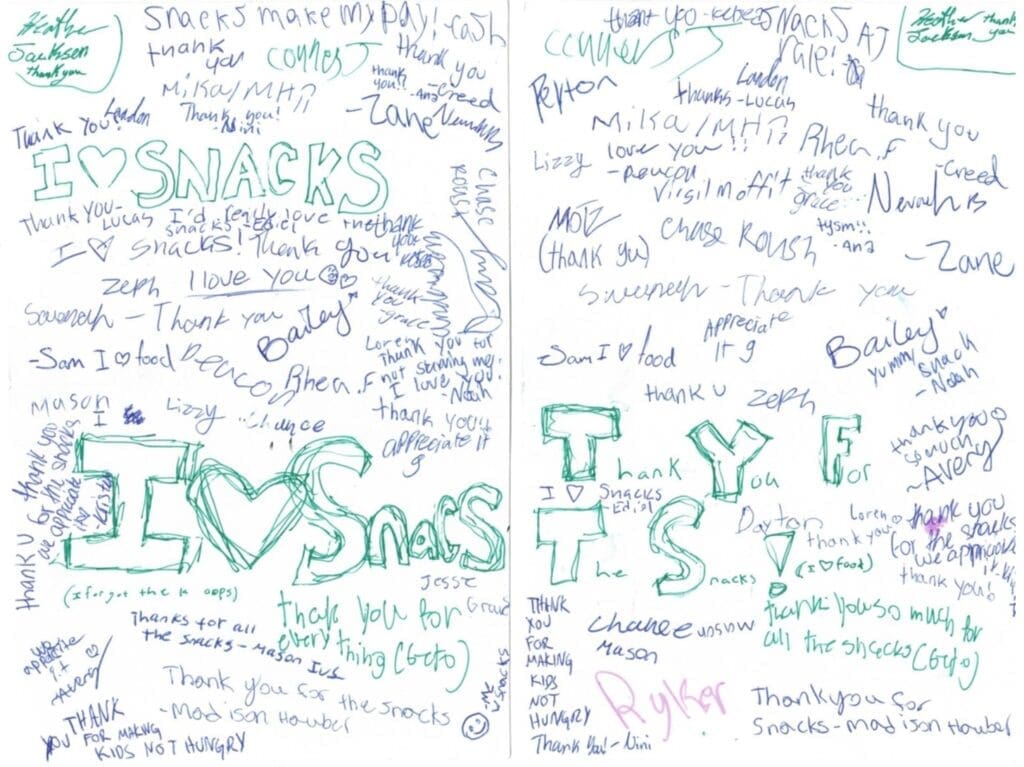 Heather
Jackson
thank you
SNACKS make my DAY! -cash
thank
you
CONNER J
thank you
-Creed
thank
you!!
-Ana
Mika/MH
Thank you!
-Nini
-Zane
Thank you!
Landon
I ♡ SNACKS
Chase
ROUSH
Thank you-
Lucas
I'd really love
snacks -Edisl
I ♡ snacks! Thank you!
thank
you
Zeph
I love you
thank
you
grace
Savannah - Thank you
Bailey
Loren
-Sam I ♡ food
Deucon
Rhea.F
Thank you for
not starving me!
I love you!
-Noah
Mason
I
Lizzy
Chance
thank you!!
appreciate it
g
thank u for thank you
we appreciate the snacks
I ♡ Snacs
(I forgot the k oops)
Jesse
thak you for
every thing (Geto)
Thanks for all
the snacks - Mason
we
appreciate
it
-Avery
Thank you for the snacks
-Madison Hawber
THANK
YOU FOR MAKING
KIDS NOT HUNGRY
Heather thank
Jackson you
thank you -
SNACKS
rule!
CONNER J
Peyton
Landon
thanks -Lucas
thank you
-Creed
Mika/MH
Lizzy
love you!!
-Deucon
Rhea.F
Virgil Moffit
thank
you
grace
Nevaeh B
MOTZ
(thank yu)
Chase ROUSH
tysm!!
-Ana
-Zane
Savannah - Thank you
Appreciate
it g
-Sam I ♡ food
Bailey
yummy snack
-Noah
thank u
Zeph
Thank You For
I ♡ Snacks
-Edisl
thank you
so much
-Avery
Dayton
Loren
thank you
The Snacks!
(I ♡ food)
thank you
for the snacks
we appreciate it
thank you!
THANK
YOU
FOR
MAKING
KIDS
NOT
HUNGRY
Chance
Mason
thank you so much for
all the snacks (Geto)
Ryker
Thank you for
snacks - Madison Hawber
Thank You! - Nini